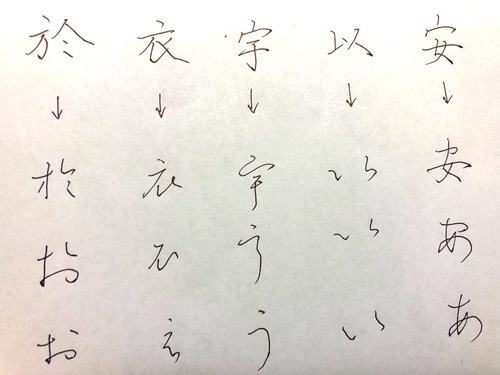 安 ↓ 安 あ あ
以 ↓ 以 い い
宇 ↓ 宇 う う
衣 ↓ 衣 え え
於 ↓ 於 お お